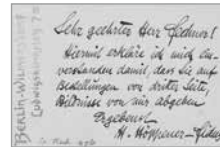 Berlin-Wilmersdorf
Ludwigkirchstr. 7a
Sehr geehrter Herr Fechner!
Hiermit erkläre ich mich ein-
verstanden damit, dass Sie auf
Bestellungen von dritter Seite,
Bildnisse von mir abgeben
Ergebenst
H. Höppener-Fidus